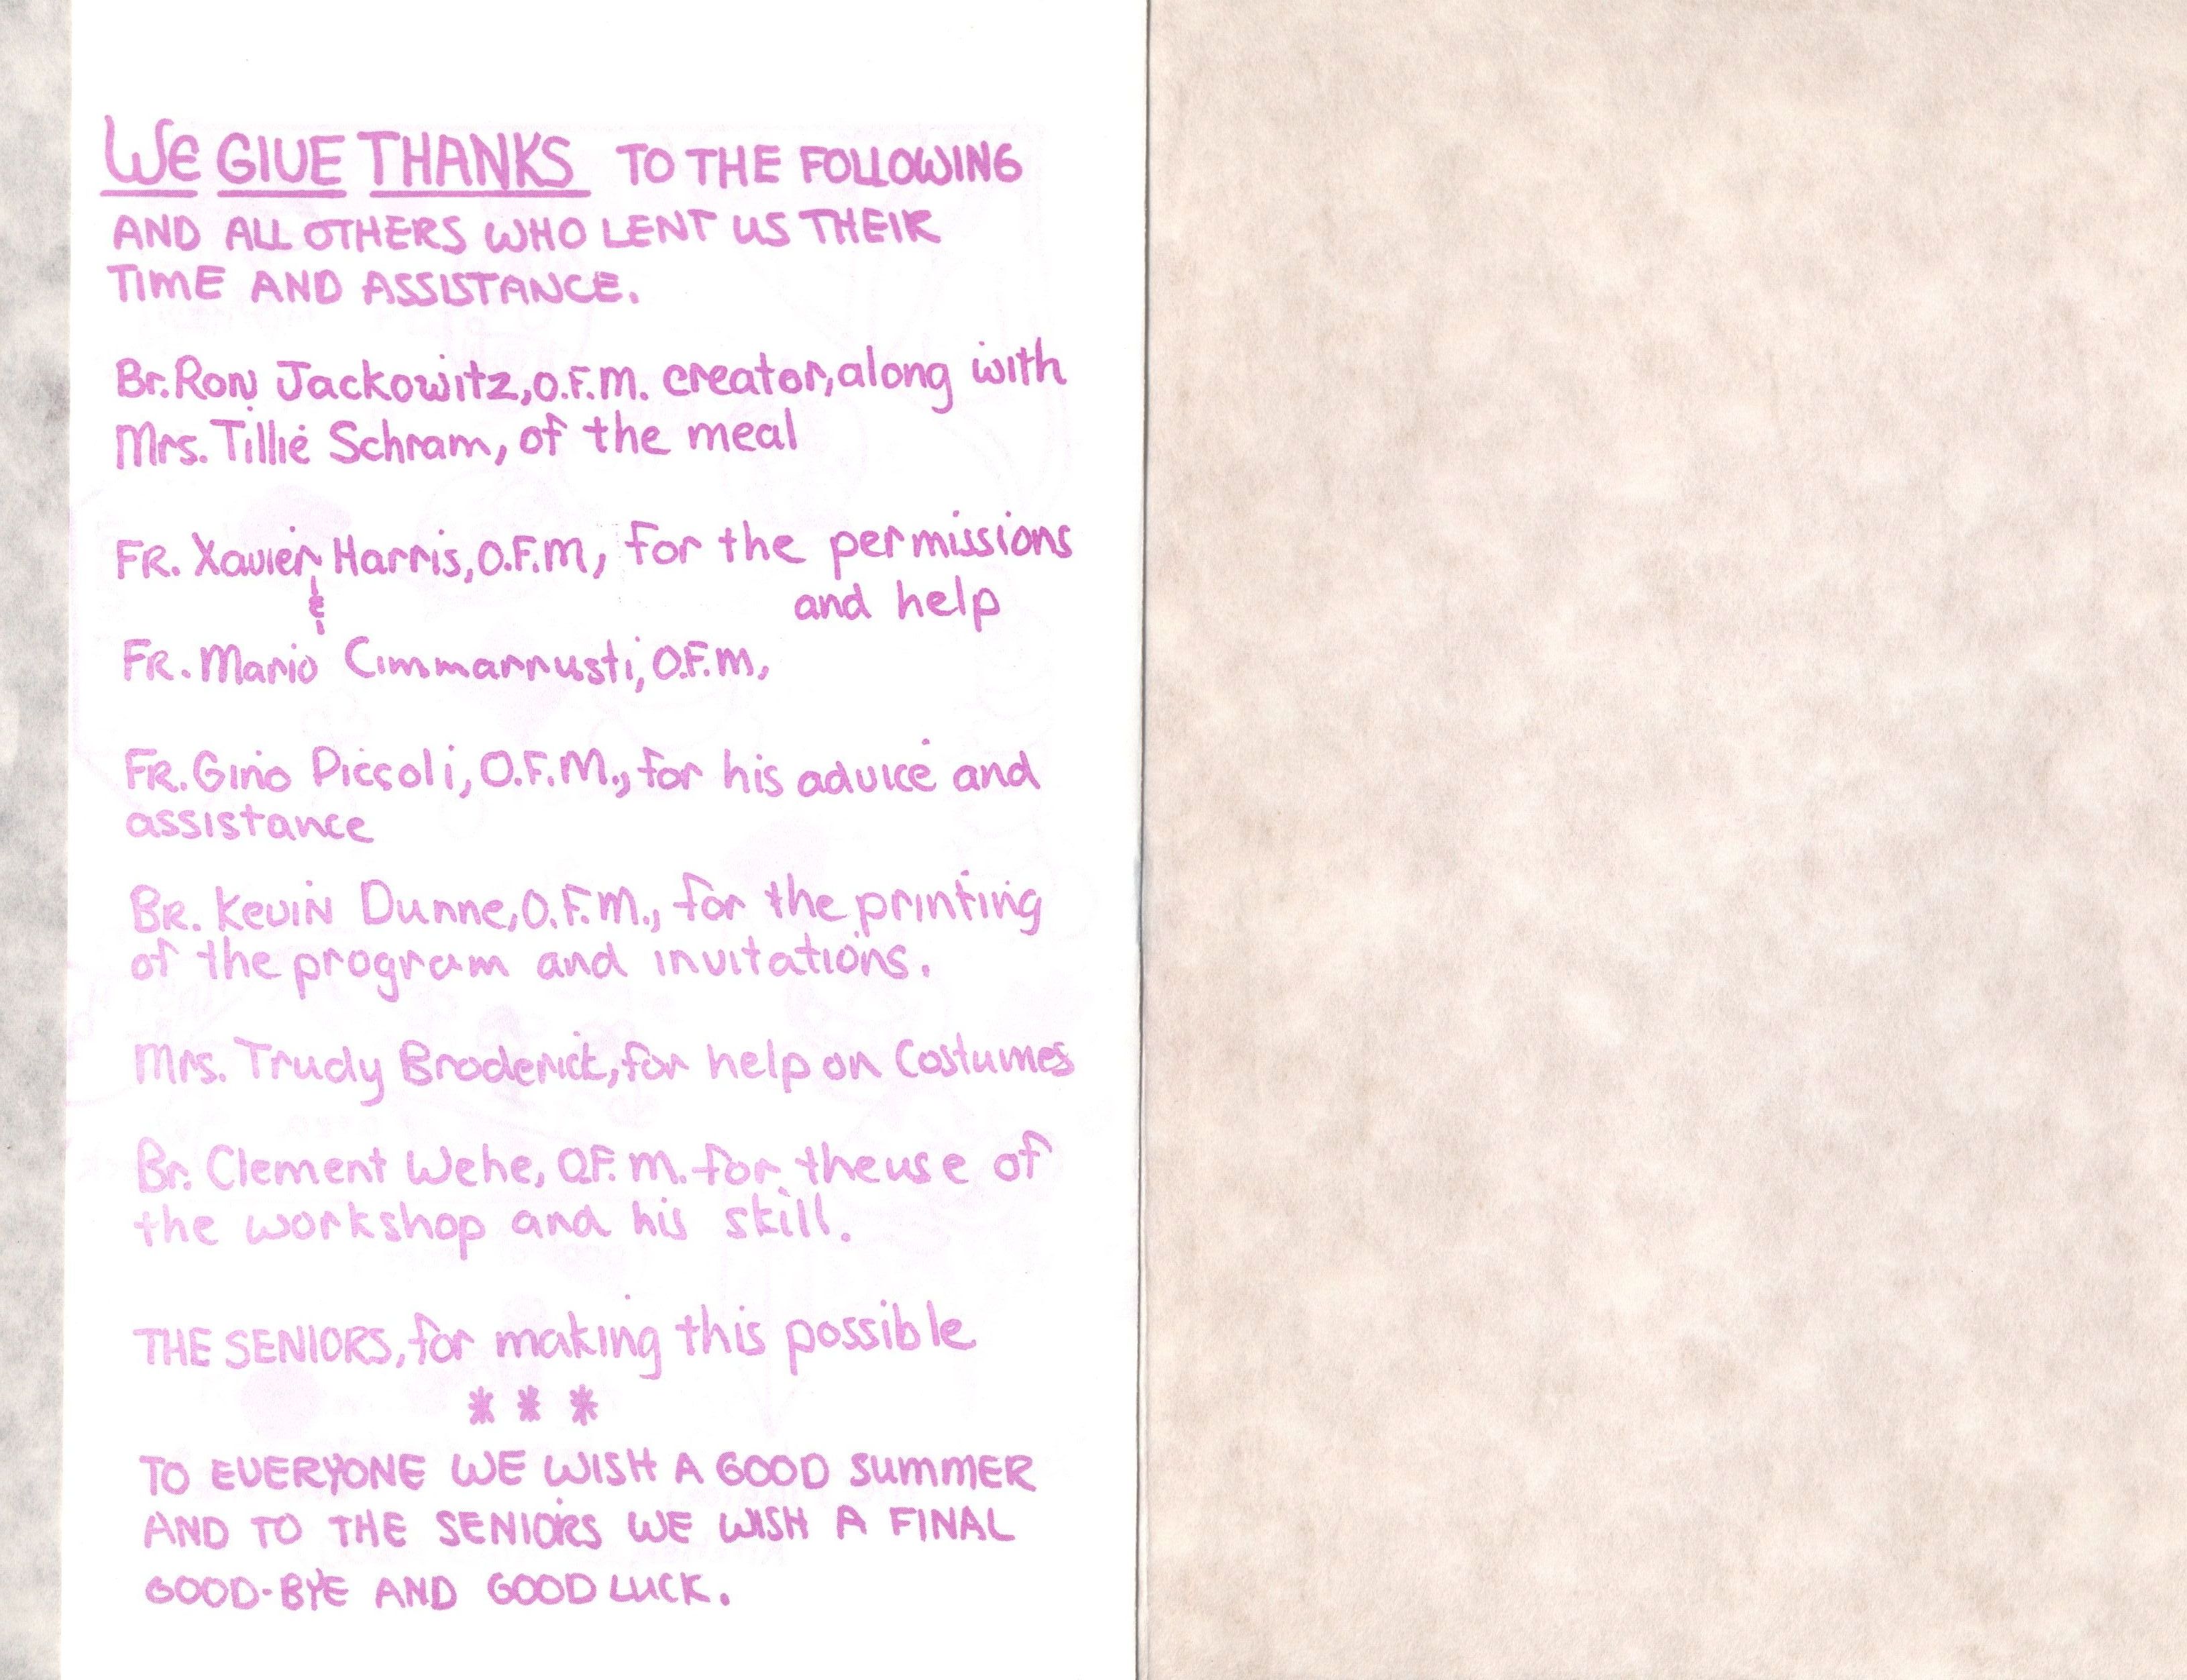 WE GIVE THANKS TO THE FOLLOWING
AND ALL OTHERS WHO LENT US THEIR
TIME AND ASSISTANCE.
Br. Ron Jackowitz, O.F.M. creator, along with
Mrs. Tillie Schram, of the meal
FR. Xavier Harris, O.F.M, for the permissions
and help
&
FR. Mario Cimmarrusti, O.F.M,
FR. Gino Piccoli, O.F.M., for his advice and
assistance
BR. Kevin Dunne, O.F.M., for the printing
of the program and invitations.
Mrs. Trudy Broderick, for help on Costumes
Br. Clement Wehe, O.F.M. for the use of
the workshop and his skill.
THE SENIORS, for making this possible
* * *
TO EVERYONE WE WISH A GOOD SUMMER
AND TO THE SENIORS WE WISH A FINAL
GOOD-BYE AND GOOD LUCK.